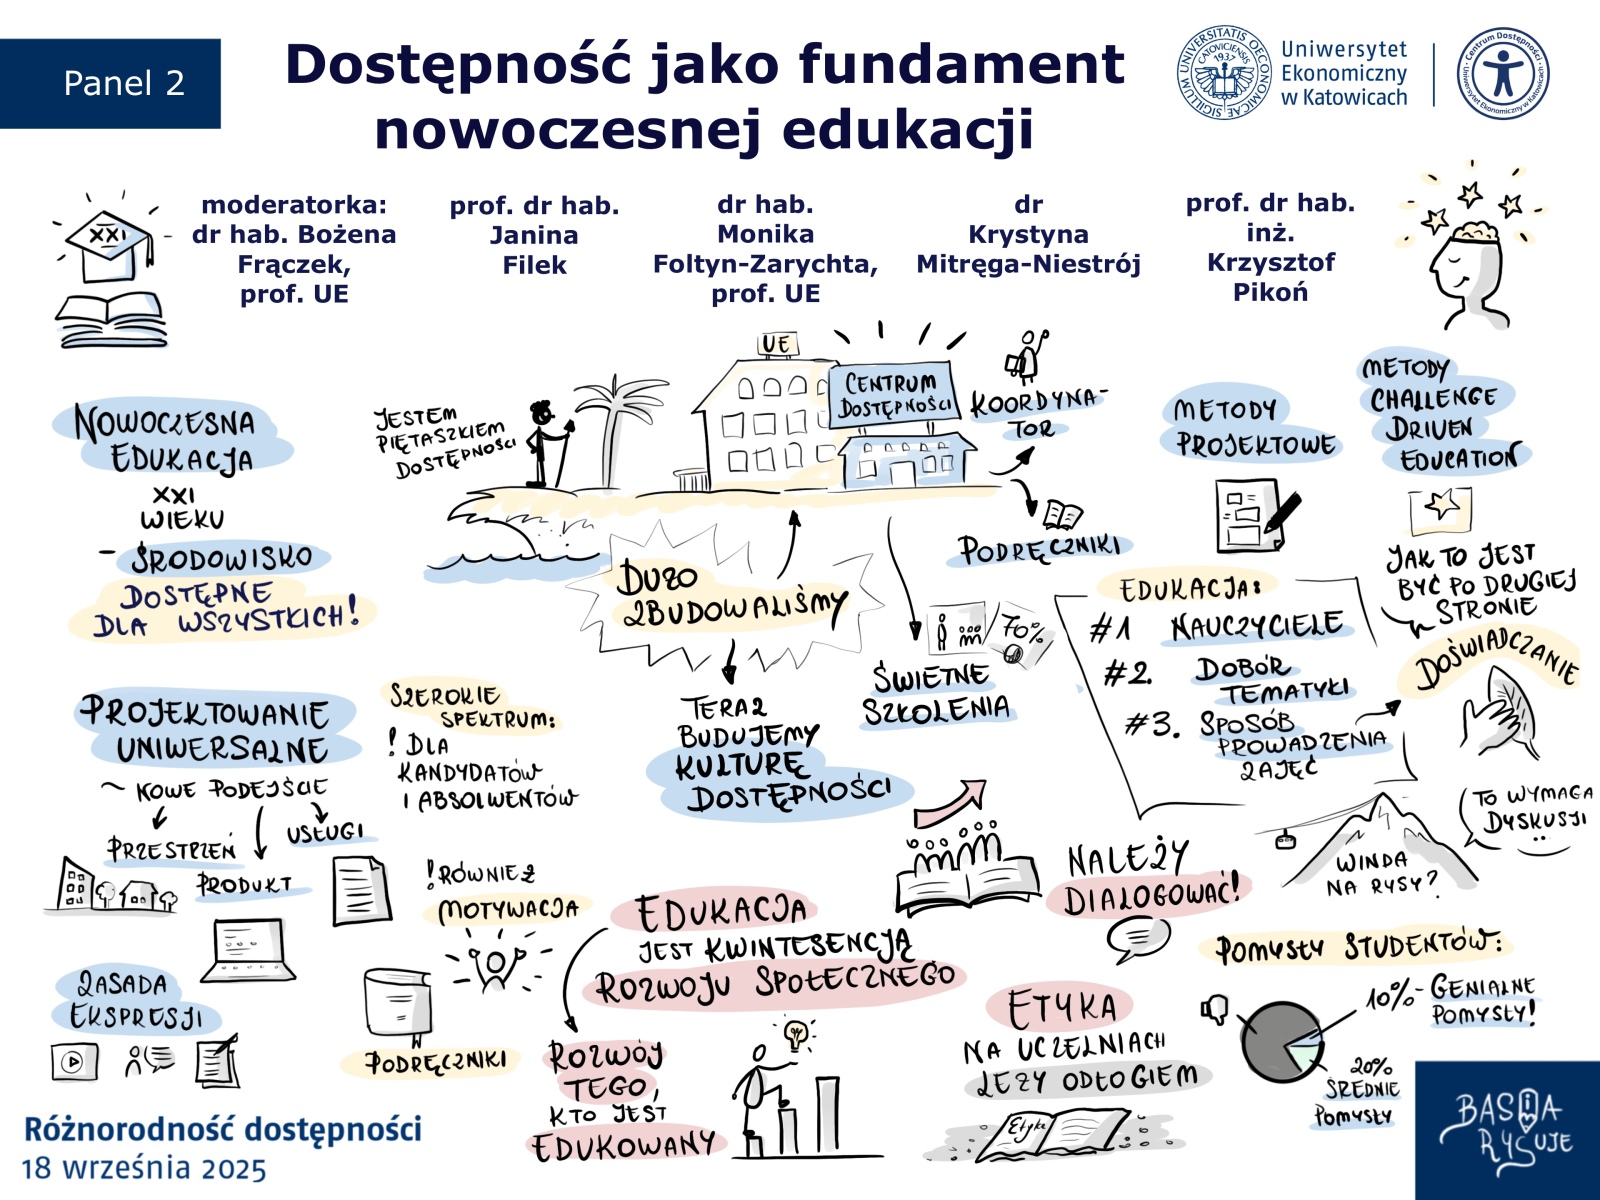 Panel 2
Dostępność jako fundament
nowoczesnej edukacji
Uniwersytet
Ekonomiczny
w Katowicach
moderatorka:
dr hab. Bożena
Frączek,
prof. UE
prof. dr hab.
Janina
Filek
dr hab.
Monika
Foltyn-Zarychta,
prof. UE
dr
Krystyna
Mitręga-Niestrój
prof. dr hab.
inż.
Krzysztof
Pikoń
XXI
NOWOCZESNA
EDUKACJA
XXI
WIEKU
- ŚRODOWISKO
DOSTĘPNE
DLA WSZYSTKICH!
JESTEM
PIĘTASZKIEM
DOSTĘPNOŚCI
UE
CENTRUM
DOSTĘPNOŚCI
KOORDYNA-
TOR
PODRĘCZNIKI
DUŻO
ZBUDOWALIŚMY
TERAZ
BUDUJEMY
KULTURĘ
DOSTĘPNOŚCI
70%
ŚWIETNE
SZKOLENIA
METODY
PROJEKTOWE
METODY
CHALLENGE
DRIVEN
EDUCATION
JAK TO JEST
BYĆ PO DRUGIEJ
STRONIE
DOŚWIADCZANIE
EDUKACJA:
#1 NAUCZYCIELE
#2. DOBÓR
TEMATYKI
#3. SPOSÓB
PROWADZENIA
ZAJĘĆ
PROJEKTOWANIE
UNIWERSALNE
~ NOWE PODEJŚCIE
PRZESTRZEŃ
PRODUKT
USŁUGI
SZEROKIE
SPEKTRUM:
! DLA
KANDYDATÓW
I ABSOLWENTÓW
! RÓWNIEŻ
MOTYWACJA
PODRĘCZNIKI
ZASADA
EKSPRESJI
EDUKACJA
JEST KWINTESENCJĄ
ROZWOJU SPOŁECZNEGO
ROZWÓJ
TEGO,
KTO JEST
EDUKOWANY
NALEŻY
DIALOGOWAĆ!
WINDA
NA RYSY?
TO WYMAGA
DYSKUSJI
ETYKA
NA UCZELNIACH
LEŻY ODŁOGIEM
Etyka
POMYSŁY STUDENTÓW:
10% - GENIALNE
POMYSŁY!
20%
ŚREDNIE
POMYSŁY
Różnorodność dostępności
18 września 2025
BASIA
RYSUJE